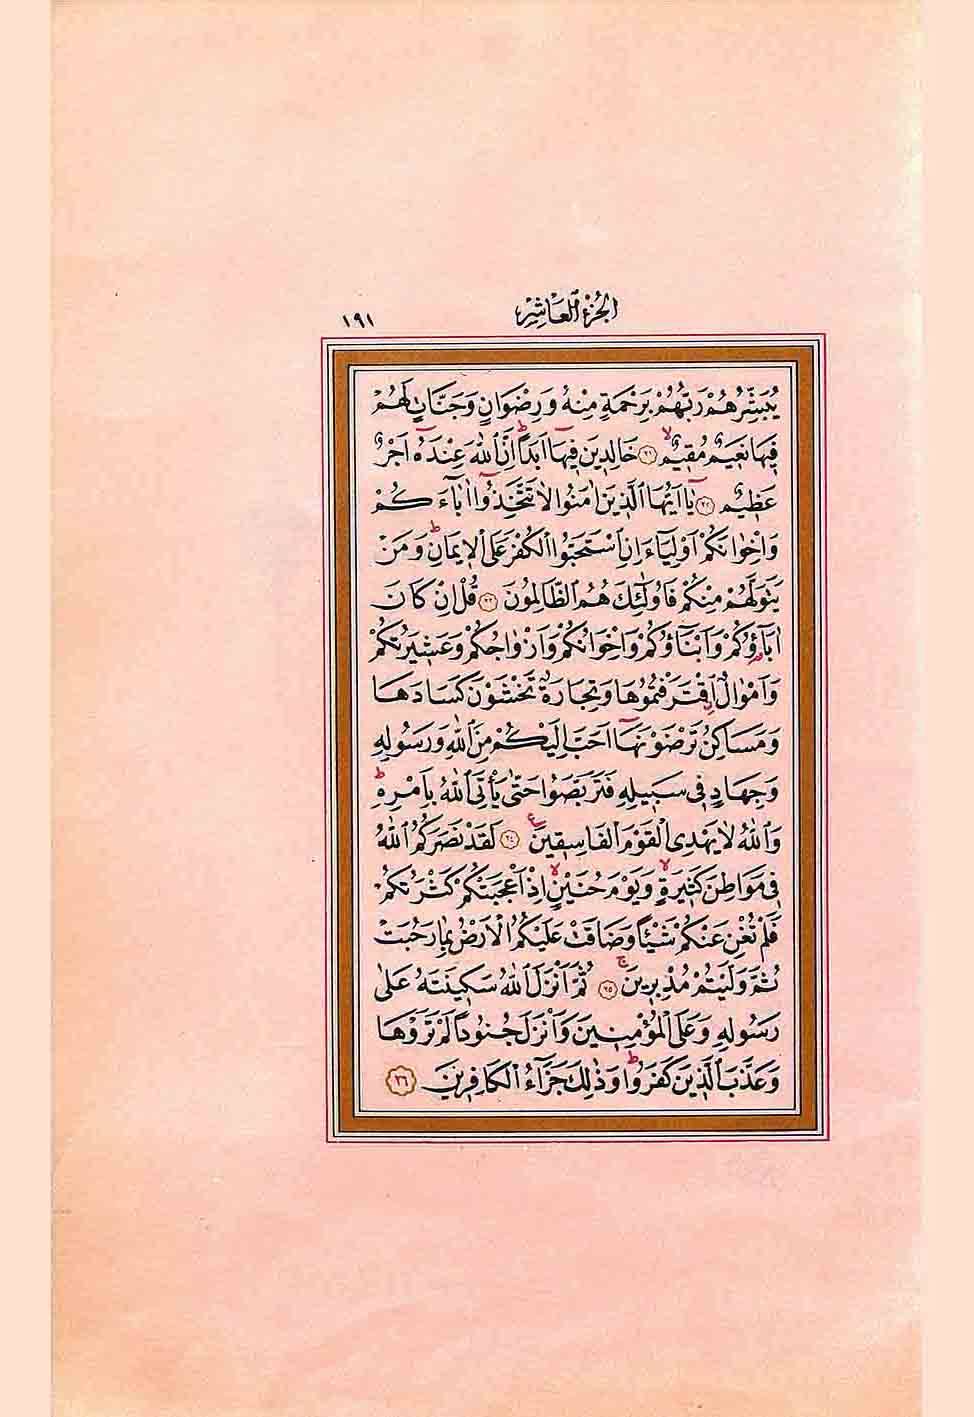 الجزء العاشر ١٩١
يُبَشِّرُهُمْ رَبُّهُمْ بِرَحْمَةٍ مِنْهُ وَرِضْوَانٍ وَجَنَّاتٍ لَهُمْ
فِيهَا نَعِيمٌ مُقِيمٌ ۙ ﴿٢١﴾ خَالِدِينَ فِيهَٓا اَبَدًا ۜ اِنَّ اللّٰهَ عِنْدَهُٓ اَجْرٌ
عَظِيمٌ ﴿٢٢﴾ يَٓا اَيُّهَا الَّذِينَ اٰمَنُوا لَا تَتَّخِذُٓوا اٰبَٓاءَكُمْ
وَاِخْوَانَكُمْ اَوْلِيَٓاءَ اِنِ اسْتَحَبُّوا الْكُفْرَ عَلَى الْاِيمَانِ ۜ وَمَنْ
يَتَوَلَّهُمْ مِنْكُمْ فَاُولٰٓئِكَ هُمُ الظَّالِمُونَ ﴿٢٣﴾ قُلْ اِنْ كَانَ
اٰبَٓاؤُ۬كُمْ وَاَبْنَٓاؤُ۬كُمْ وَاِخْوَانُكُمْ وَاَزْوَاجُكُمْ وَعَشِيرَتُكُمْ
وَاَمْوَالٌ اقْتَرَفْتُمُوهَا وَتِجَارَةٌ تَخْشَوْنَ كَسَادَهَا
وَمَسَاكِنُ تَرْضَوْنَهَٓا اَحَبَّ اِلَيْكُمْ مِنَ اللّٰهِ وَرَسُولِهِ
وَجِهَادٍ فِي سَبِيلِهِ فَتَرَبَّصُوا حَتّٰى يَأْتِيَ اللّٰهُ بِاَمْرِهِ ۜ
وَاللّٰهُ لَا يَهْدِي الْقَوْمَ الْفَاسِقِينَ ۟ ﴿٢٤﴾ لَقَدْ نَصَرَكُمُ اللّٰهُ
فِي مَوَاطِنَ كَثِيرَةٍ ۙ وَيَوْمَ حُنَيْنٍ ۙ اِذْ اَعْجَبَتْكُمْ كَثْرَتُكُمْ
فَلَمْ تُغْنِ عَنْكُمْ شَيْـًٔا وَضَاقَتْ عَلَيْكُمُ الْاَرْضُ بِمَا رَحُبَتْ
ثُمَّ وَلَّيْتُمْ مُدْبِرِينَ ۚ ﴿٢٥﴾ ثُمَّ اَنْزَلَ اللّٰهُ سَكِينَتَهُ عَلٰى
رَسُولِهِ وَعَلَى الْمُؤْمِنِينَ وَاَنْزَلَ جُنُودًا لَمْ تَرَوْهَا
وَعَذَّبَ الَّذِينَ كَفَرُوا ۜ وَذٰلِكَ جَزَٓاءُ الْكَافِرِينَ ﴿٢٦﴾